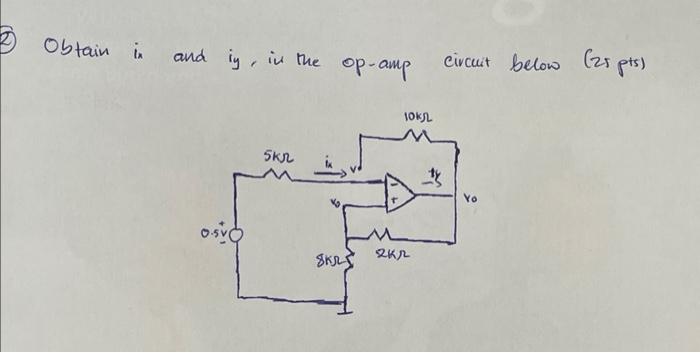 2) Obtain ix and iy, in the op-amp circuit below (25 pts)
10KΩ
5KΩ
ix
iy
Vo
0.5V
+
-
8KΩ
2KΩ